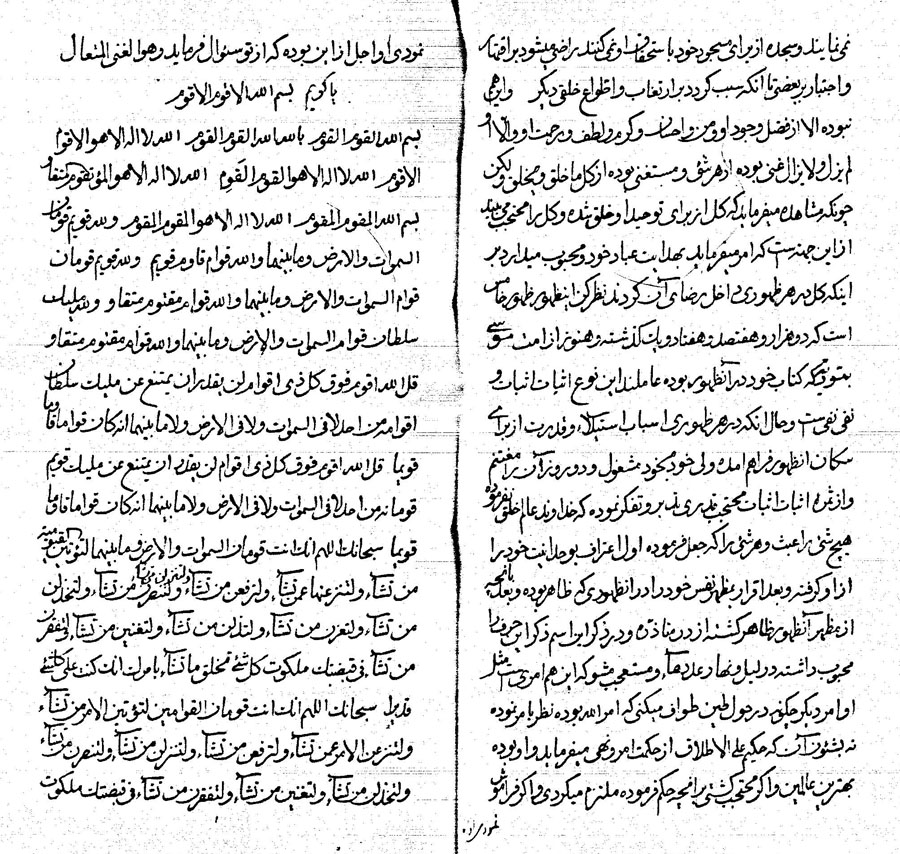 نمی نمایند و سجده از برای مسجود خود باستحقاق او نمی کنند راضی میشود بر اقتدار
و اختبار بر بعضی تا آنکه سبب کردد بر ارتغاب و اظواع خلق دیکر و این هم
نبوده الا از فضل وجود او و من و احسان و کرم و لطف و رحمت او و الا او
لم یزل و لا یزال غنی بوده از هر شئ و مستغنی بوده از کل ما خلق و یخلق ولکن
چونکه مشاهده میفرماید که کل از برای توحید او خلق شده و کل را محتجب می بیند
از این جهت است که امر میفرماید بهدایت عباد خود و محبوب میدارد بر
اینکه کل در هر ظهوری داخل رضای آن کردند نظر کن این ظهور بظهور خاص
است که دو هزار و هفتصد و هفتاد و یک گذشته و هنوز از امت موسی
بتوریة که کتاب خود در آنظهور بوده عاملند این نوع اثبات اثبات و
نفی نفی است و حال انکه در هر ظهوری اسباب استیلاء و قدرت از برای
سکان انظهور فراهم امده ولی خود بخود مشغول و دو روز آن را مغتنم
و از ثمرهٔ اثبات اثبات محتجب قدری تدبر و تفکر نموده که خداوند عالم خلق نفرموده
هیچ شئ را عبث و هر شئ را که جعل فرموده اول اعتراف بوحدانیت خود را
از او کرفته و بعد اقرار بمظهر نفس خود را در انظهوری که ظاهر بوده و بعد بانچه
از مظهر آنظهور ظاهر کشته از درنا ذره و در ذکر این اسم ذکر این حروف را
محبوب داشته در لیل و نهار عدد هاء و متعجب مشو که این هم امریست مثل
اوامر دیکر چکونه در حول طین طواف میکنی که امر الله بوده نظر بامر نموده
نه بشئون آن که حکیم علی الاطلاق از حکمت امر و نهی میفرماید و او بوده
بهترین عالمین و اگر محتجب کشتی بر انچه حکم فرموده ملزم میکردی و اکر فراموش
نمودی او
نمودی او اجل از این بوده که از تو سئوال فرماید و هو الغنی المتعال
یا کریم بسم الله الاقوم الاقوم
بسم الله القوم القوم بالله الله القوم القوم الله لا اله الا هو الاقوم
الاقوم الله لا اله الا هو القوم القوم الله لا اله الا هو المؤتقوم المتقاو
بسم الله المقوم المقوم الله لا اله الا هو المقوم المقوم و لله قویم قومان
السموات والارض وما بینهما والله قوام قاوم قویم و لله قویم قومان
قوام السموات والارض وما بینهما والله قوام مقتوم متقاو و لله ملیک
سلطان قوام السموات والارض وما بینهما والله قوام مقتوم متقاو
قل الله اقوم فوق کل ذی اقوام لن یقدر ان یمتنع عن ملیک سلطان
اقوامه من احد لا فی السموات ولا فی الارض ولا ما بینهما انه کان قواما قاوما
قویما قل الله اقوم فوق کل ذی اقوام لن یقدر ان یمتنع عن ملیک قویم
قومانه من احد لا فی السموات ولا فی الارض ولا ما بینهما انه کان قواما قاوما
قویما سبحانک اللهم انک انت قومان السموات والارض وما بینهما لتؤتین القیومیة
من تشاء ولتنزعنها عمن تشاء ولترفعن من تشاء ولتنزلن من تشاء ولتنصرن من تشاء ولتخذلن
من تشاء ولتعزن من تشاء ولتذلن من تشاء ولتغنین من تشاء ولتفقرن
من تشاء فی قبضتک ملکوت کل شئ تخلق ما تشاء بامرک انک کنت علی کل شئ
قدیرا سبحانک اللهم انک انت قومان القوامین لتؤتین الامر من تشاء
ولتنزعن الامر عمن تشاء ولترفعن من تشاء ولتنزلن من تشاء ولتنصرن من تشاء
ولتخذلن من تشاء ولتغنین من تشاء ولتفقرن من تشاء فی قبضتک ملکوت